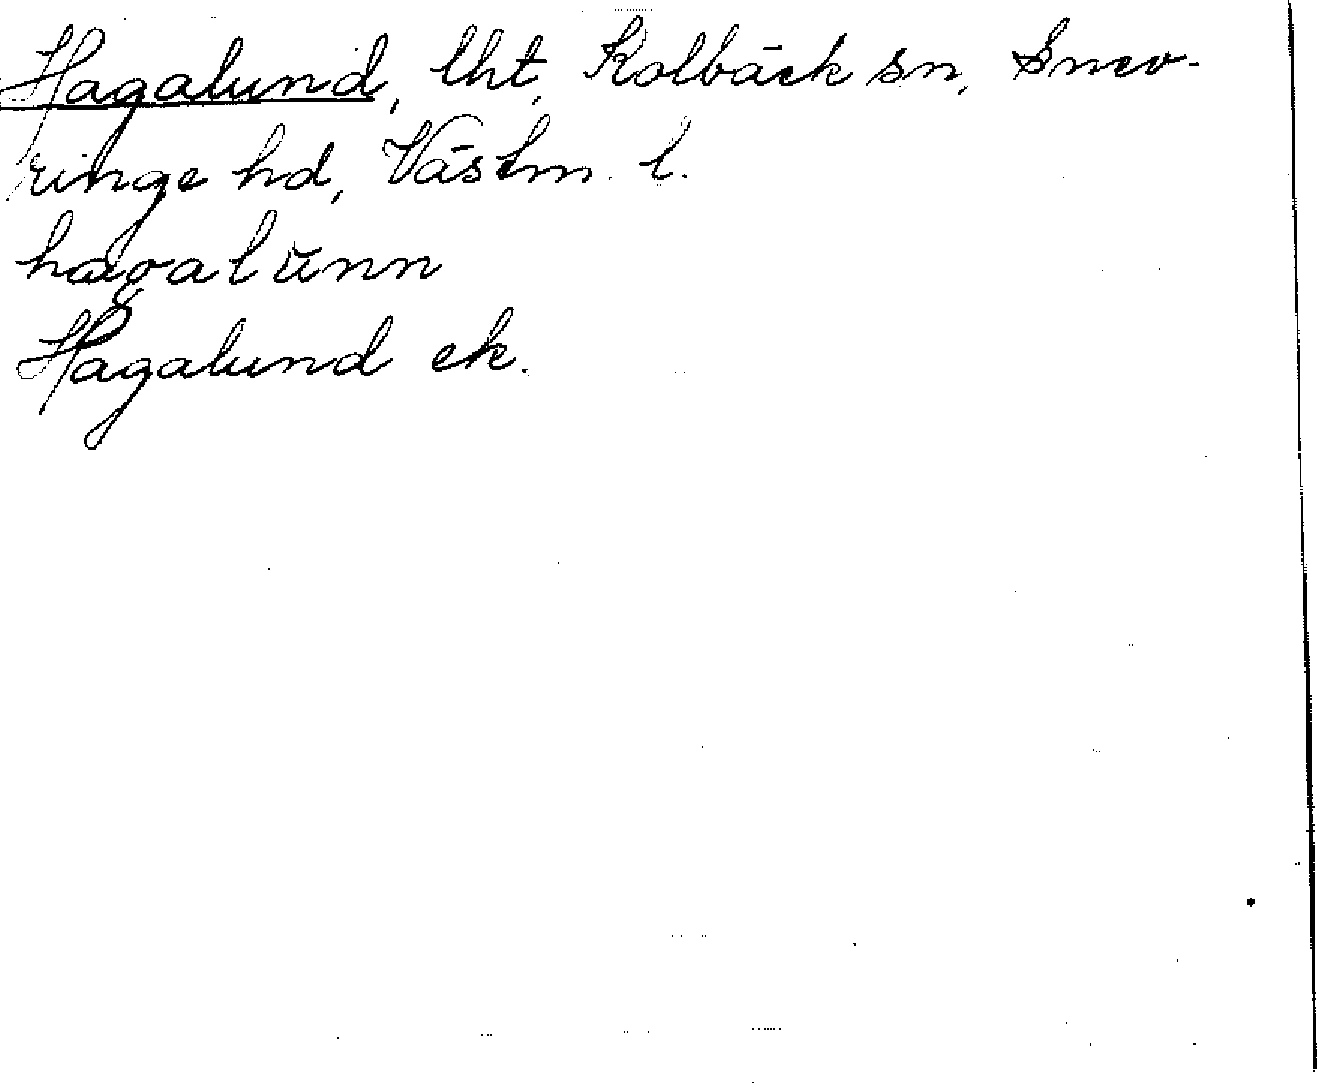 Hagalund, lht, Kolbäck sn, Snev-
ringe hd, Västm. l.
hagalŭnn
Hagalund ek.